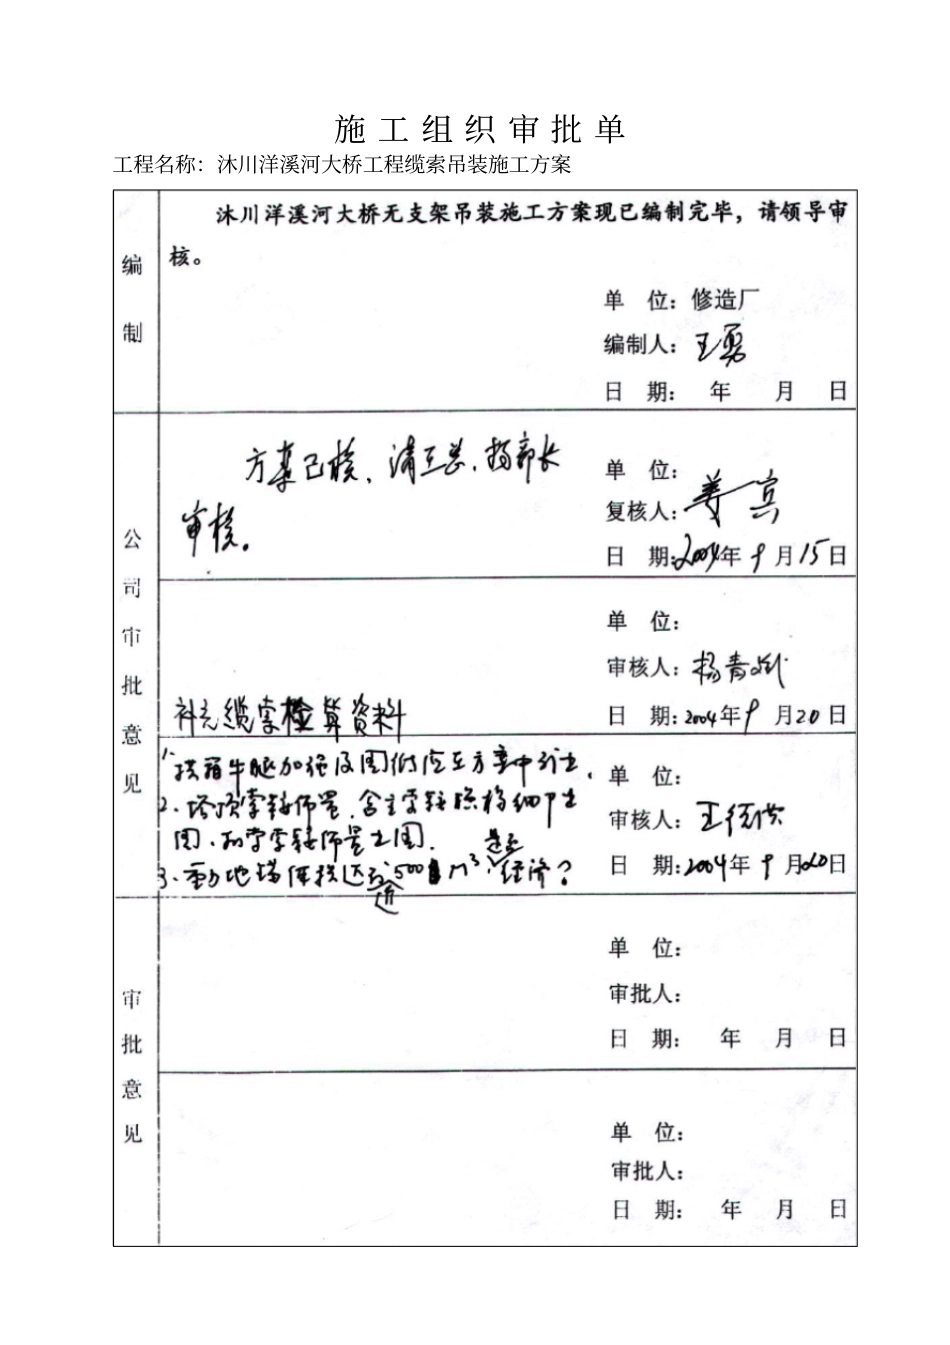 施工组织审批单
工程名称：沐川洋溪河大桥工程缆索吊装施工方案
编制
沐川洋溪河大桥无支架吊装施工方案现已编制完毕，请领导审
核。
单 位：修造厂
编制人：王勇
日 期： 年 月 日
公司审批意见
方案已核，请王总、杨部长
审核。
单 位：
复核人：姜宾
日 期：2004年9月15日
补充缆索检算资料
单 位：
审核人：杨青
日 期：2004年9月20日
1、拱箱牛腿加强及图纸应在方案中计出。
2、塔顶索鞍布置，含主索鞍
图、扣索索鞍布置出图.
3、重力地锚体积达到500m³，是否经济？
单 位：
审核人：王
日 期：2004年9月20日
审批意见
单 位：
审批人：
日 期： 年 月 日
单 位：
审批人：
日 期： 年 月 日